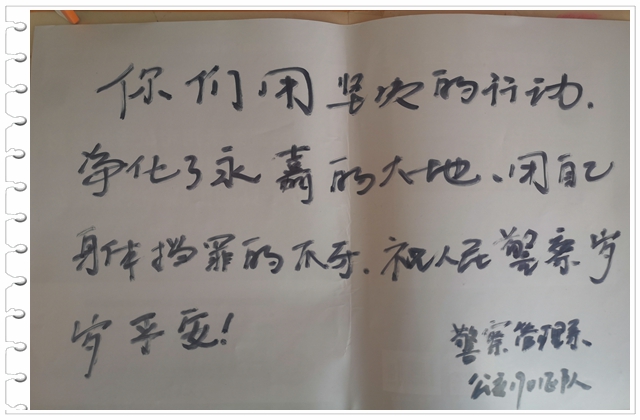 你们用坚决的行动.
净化了永嘉的大地、用自己
身体挡罪的不牙.祝人民警察岁
岁平安!
警察管理系
公
队